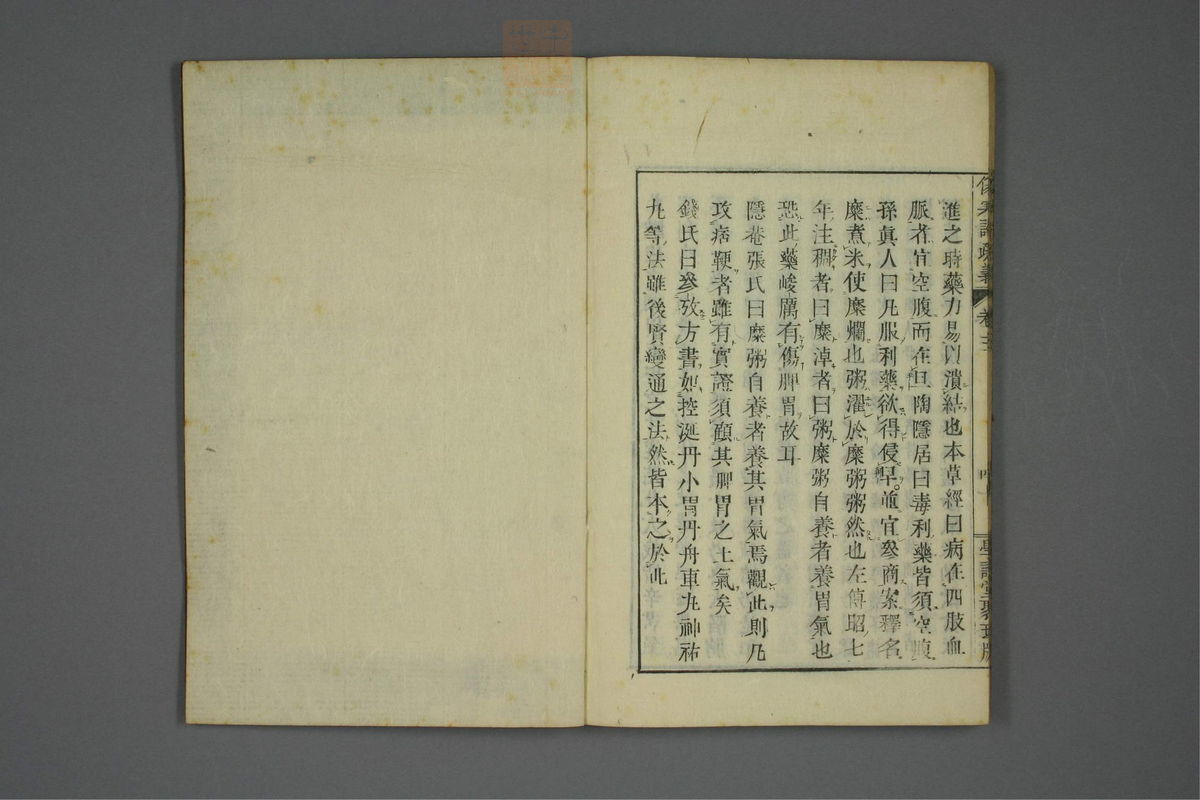 傷寒論疏義 卷三
學訓堂聚珍版
進之時藥力易以潰結也本草經曰病在四肢血
脈者宜空腹而在旦陶隱居曰毒利藥皆須空腹
孫眞人曰凡服利藥欲得侵早並宜參商案釋名
糜煮米使糜爛也粥濯於糜粥粥然也左傳昭七
年注稠者曰糜淖者曰粥糜粥自養者養胃氣也
恐此藥峻厲有傷脾胃故耳
隱菴張氏曰糜粥自養者養其胃氣焉觀此則凡
攻痞鞕者雖有實證須顧其脾胃之土氣矣
錢氏曰參攷方書如控涎丹小胃丹舟車丸神祐
丸等法雖後賢變通之法然皆本之於此